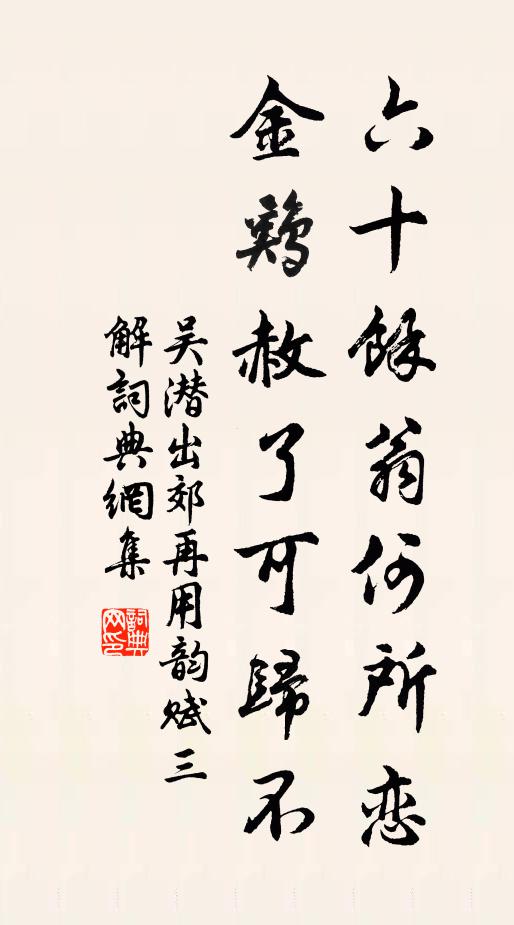 六十餘翁何所恋
金鷄赦了可歸不
吴潜出郊再用韵赋三
解詞典網集
詞典
网印